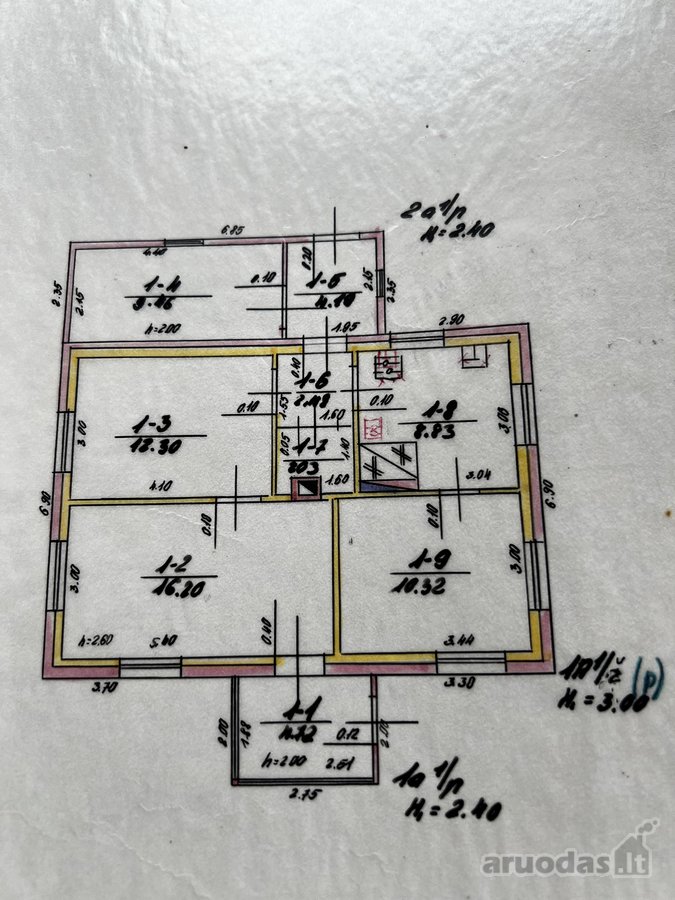 2a 1/p
H=2.40
6.85
4.40
0.20
1-4
9.46
0.10
1-5
4.19
2.35
2.15
2.15
2.35
h=2.00
1.95
2.90
0.10
1-6
2.48
1-3
12.30
0.10
1.55
1.60
0.10
1-8
8.83
3.00
3.03
0.05
1-7
1.10
4.10
1.60
3.04
6.90
0.10
0.10
6.90
1-2
16.20
1-9
10.32
3.00
3.00
h=2.60
5.40
0.40
3.44
3.70
3.30
1A 1/ž (p)
H₁=3.00
1-1
4.72
2.00
1.88
0.12
2.00
h=2.00
2.51
2.75
1a 1/p
H₁=2.40
aruodas.lt